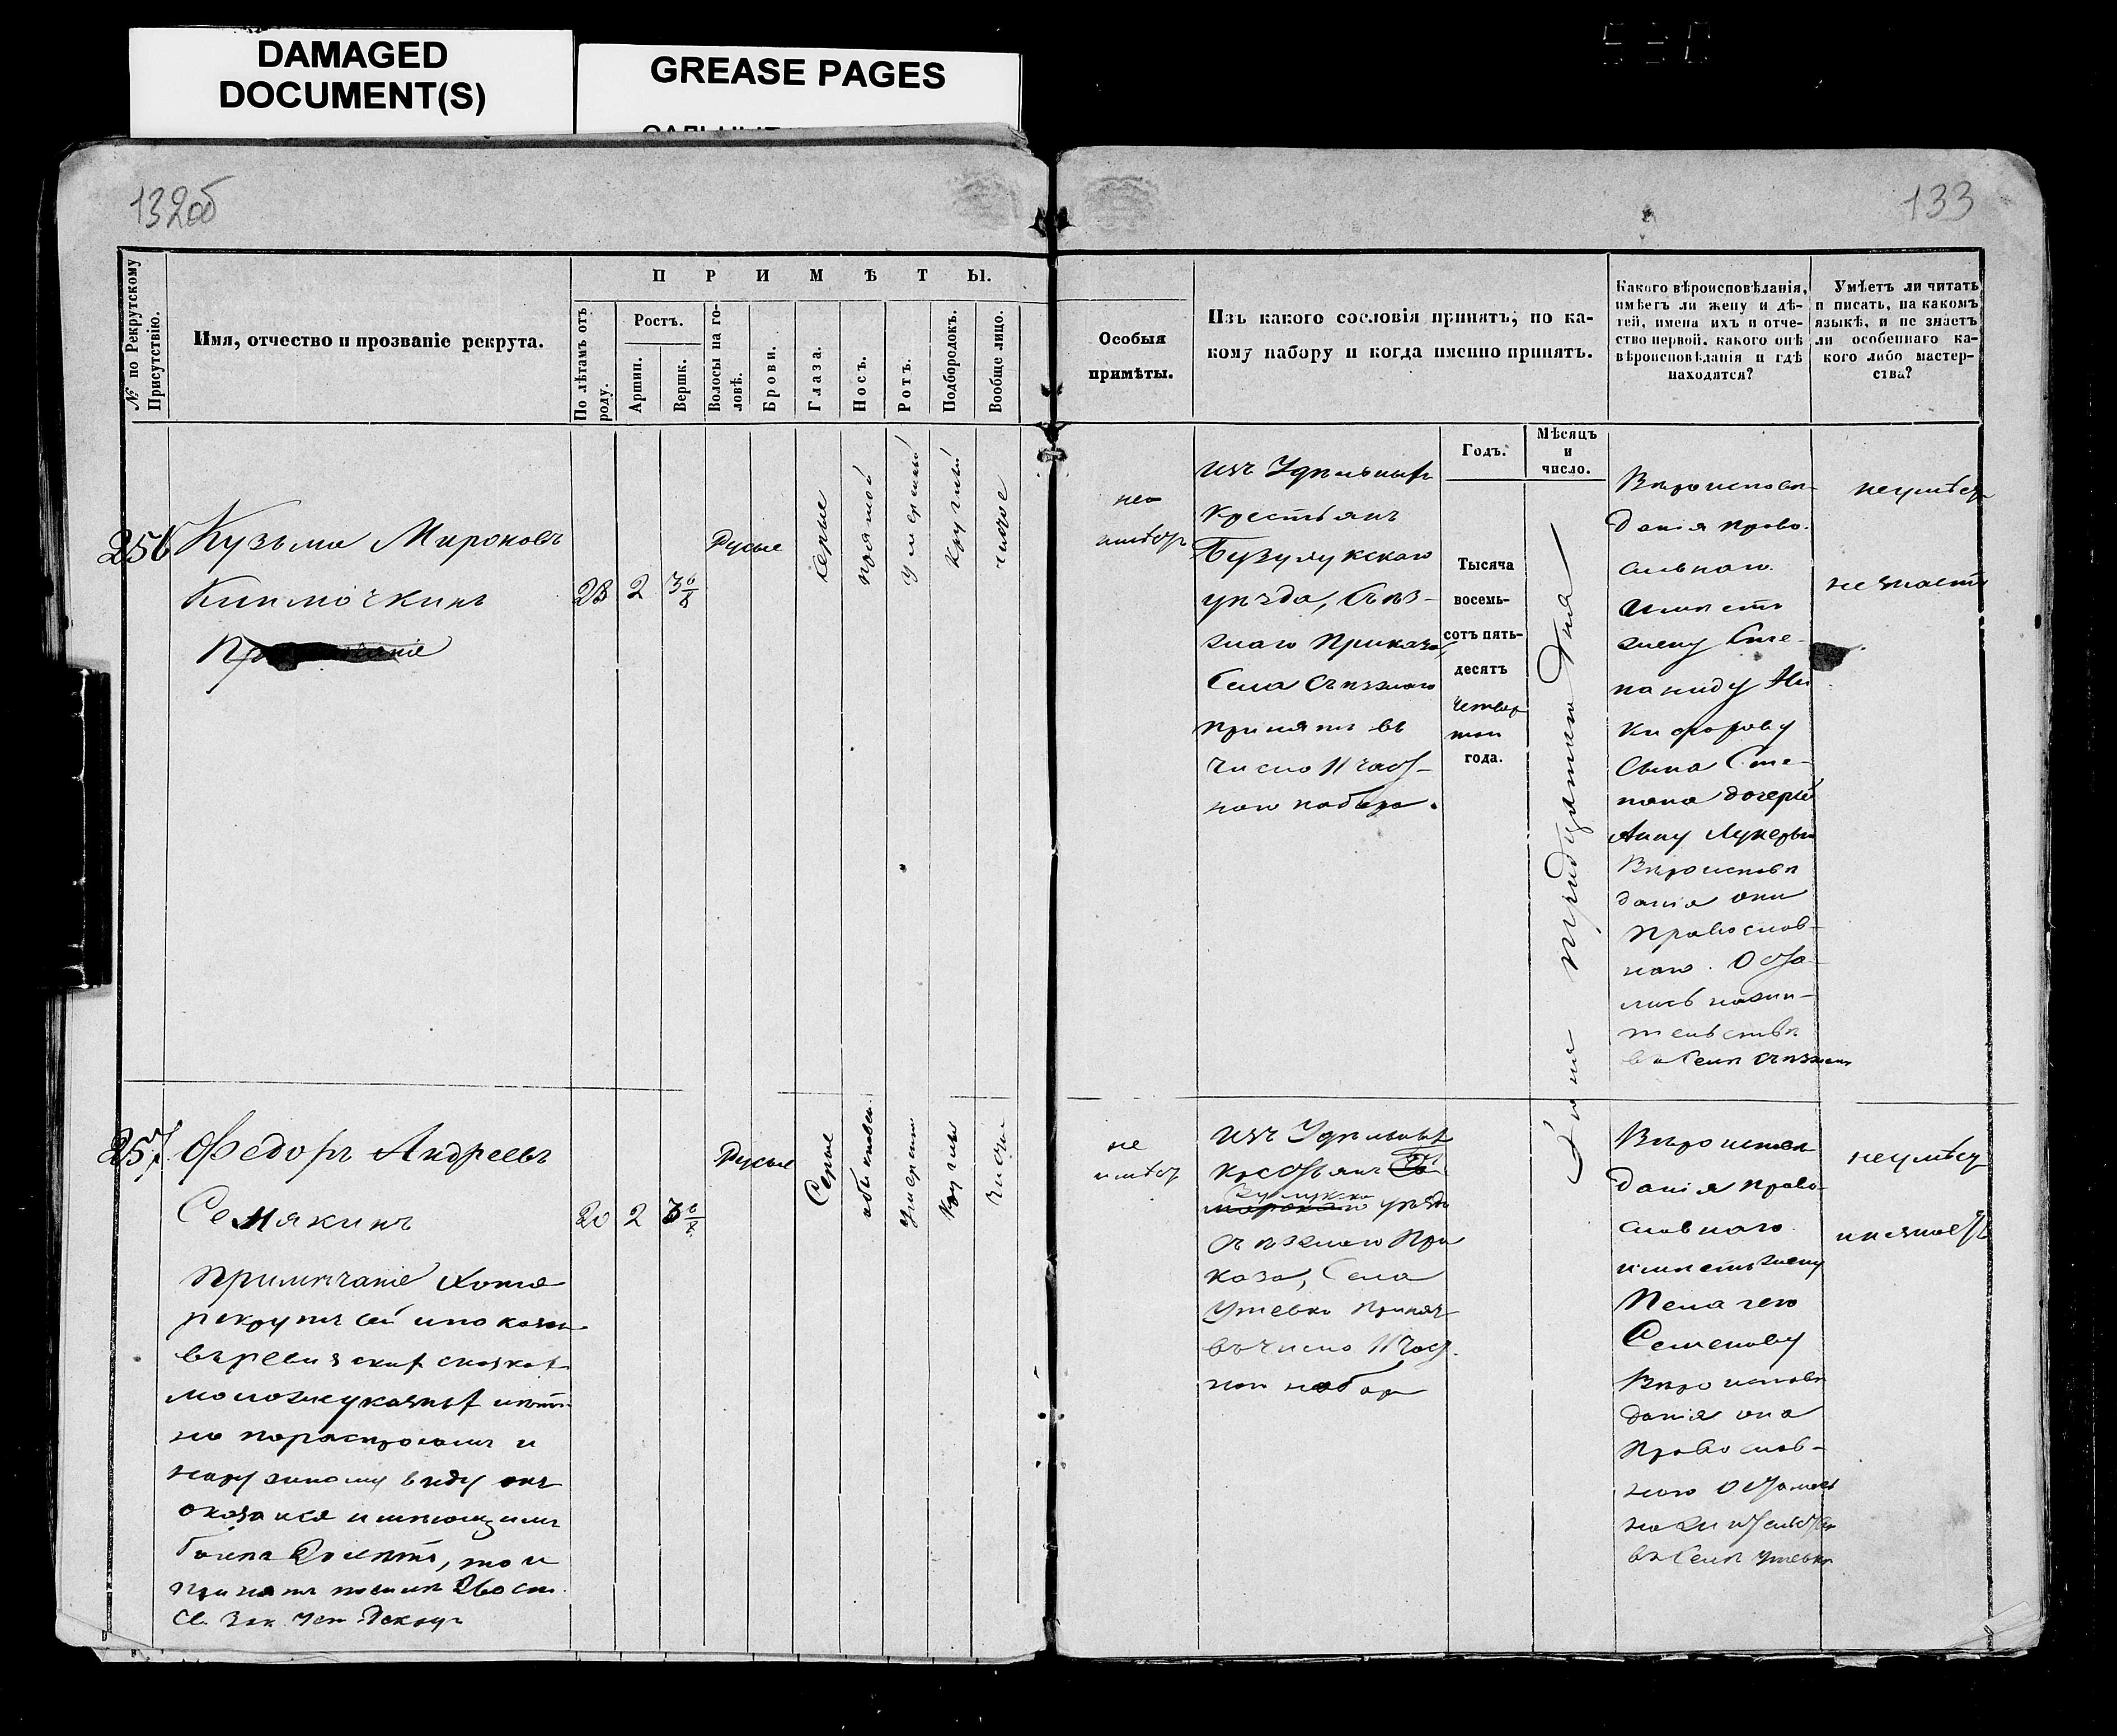 DAMAGED
DOCUMENT(S)
GREASE PAGES
132об
133
№ по Рекрутскому
Присутствію.
Имя, отчество и прозваніе рекрута.
П Р И М Ѣ Т Ы.
По лѣтамъ отъ
роду.
Ростъ.
Аршин.
Вершк.
Волосы на го-
ловѣ.
Брови.
Глаза.
Носъ.
Ротъ.
Подбородокъ.
Вообще лицо.
Особыя
примѣты.
Изъ какого сословія принятъ, по ка-
кому набору и когда именно принятъ.
Какого вѣроисповѣданія,
имѣетъ ли жену и дѣ-
тей, имена ихъ и отче-
ство первой, какого онѣ
вѣроисповѣданія и гдѣ
находятся?
Умѣетъ ли читать
и писать, на какомъ
языкѣ, и не знаетъ
ли особеннаго ка-
кого либо мастер-
ства?
Годъ.
Мѣсяцъ
и
число.
256
Кузьма Мироновъ
28
2
3 6/8
Русые
серые
прямой
умеренный
круглый
чистое
не
имѣетъ
изъ Удѣльныхъ
Крестьянъ
Бузулукскаго
уѣзда, Съѣз-
жаго Приказа,
Села Съѣзжаго
принятъ въ
число 11 част-
наго набора.
Тысяча
восемь-
сотъ пять-
десятъ
четвер
таго
года.
тридцатаго дня
Вѣроисповѣ-
данія право-
славнаго
Имѣетъ
жену Сте-
паниду Ни
кифорову
Сына Сте-
пана дочерей
Анну Лукерью
Вѣроисповѣ
данія они
Православ-
наго. Оста-
лись на жи-
тельствѣ
въ Селѣ Съѣзжемъ
неумѣетъ
незнаетъ
257.
Федоръ Андреевъ
Семякинъ
Примѣчаніе Хотя
рекрутъ сей и показанъ
въ ревизскихъ сказкахъ
моложе указныхъ лѣтъ
но по распросамъ и
наружному виду онъ
оказался имѣющимъ
болѣе 20 лѣтъ, то и
принятъ по силѣ 260 ст.
Св. Зак. Уст. Рекрут
20
2
3 6/8
Русые
Серые
обыкновен.
Умеренный
Круглый
Чистое
не
имѣетъ
изъ Удѣльныхъ
крестьянъ Бу
зулукскаго уѣзда
Съѣзжаго При
каза, Села
Утевки Принятъ
въ число 11 част.
наго набора
Вѣроисповѣ
данія право-
славнаго
имѣетъ жену
Пелагею
Семенову
Вѣроисповѣ
данія она
Православ-
наго Осталась
на жительствѣ
въ Селѣ Утевкѣ
неумѣетъ
инезнаетъ